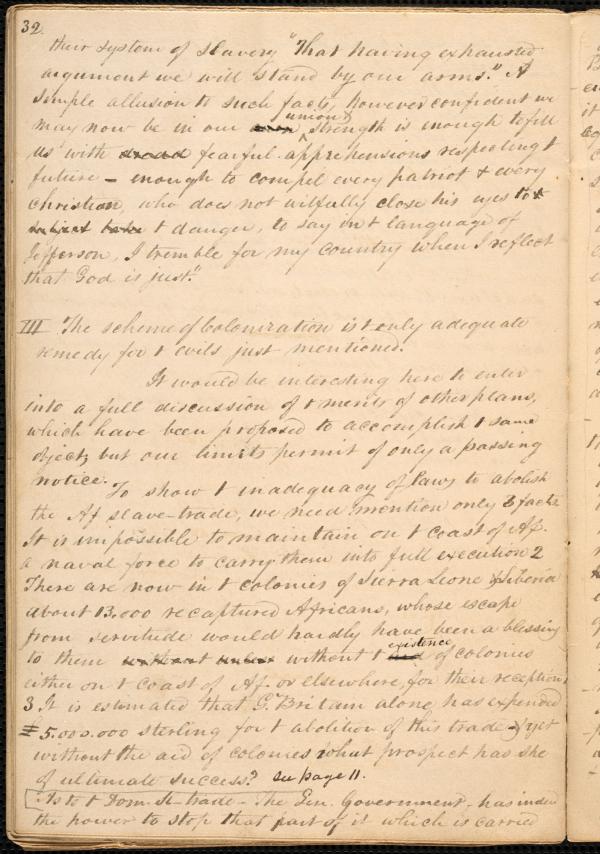 32
their system of slavery "That having exhausted
argument we will stand by our arms." A
simple allusion to such facts, however confident we
may now be in our union & strength is enough to fill
us with fearful apprehensions respecting t
future – enough to compel every patriot & every
christian, who does not wilfully close his eyes to
t danger, to say in t language of
Jefferson, I tremble for my country when I reflect
that God is just."
III The scheme of Colonization is t only adequate
remedy for t evils just mentioned.
It would be interesting here to enter
into a full discussion of t merits of other plans,
which have been proposed to accomplish t same
object; but our limits permit of only a passing
notice.
To show t inadequacy of laws to abolish
the Af slave-trade, we need mention only 3 facts.
It is impossible to maintain on t coast of Af.
a naval force to carry them into full execution 2
There are now in t colonies of Sierra Leone & Liberia
about 13,000 recaptured Africans, whose escape
from servitude would hardly have been a blessing
to them without t existence of colonies
either on t coast of Af. or elsewhere, for their reception
3 It is estimated that G. Britain alone, has expended
£5.000.000 sterling for t abolition of this trade & yet
without the aid of colonies what prospect has she
of ultimate success? see page 11.
As to t Dom. sl-trade – The Gen. Government, has indeed
the power to stop that part of it which is carried